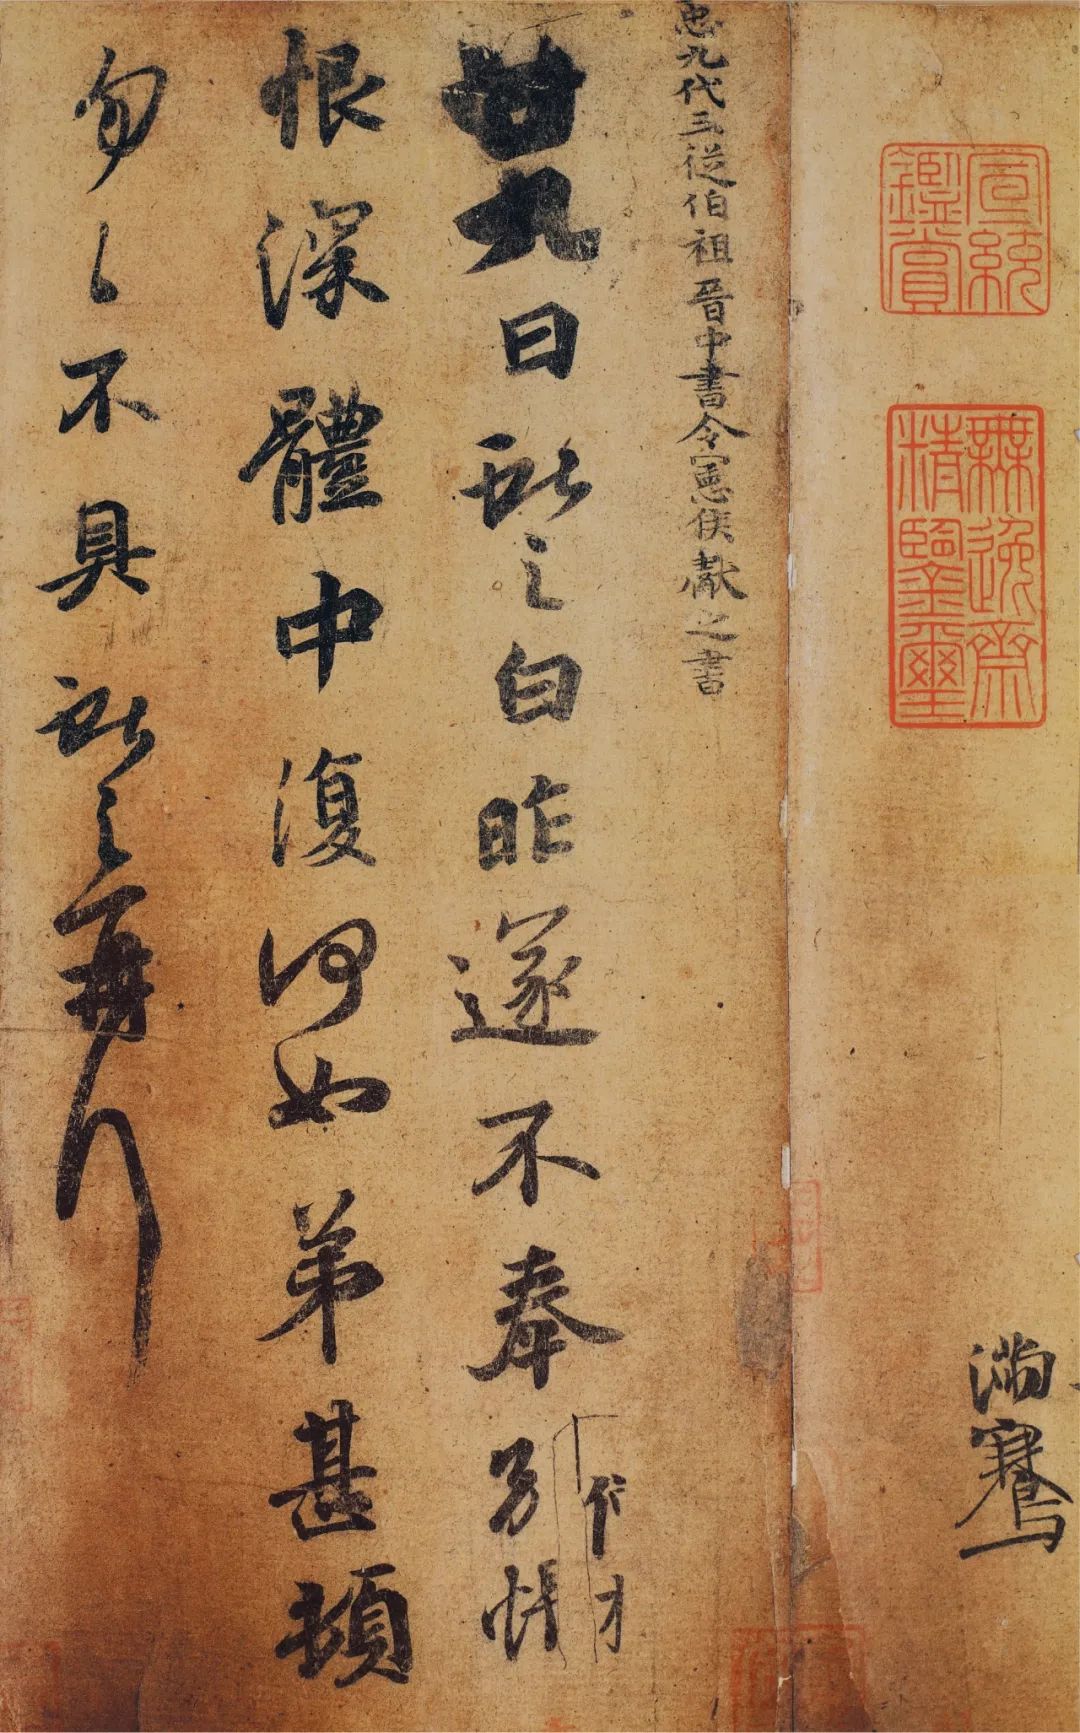 宣統
鑑賞
無逸齋
精鑒璽
滿騫
九代三從伯祖晉中書令憲侯獻之書
廿九日獻之白昨遂不奉別悵
恨深體中復何如弟甚頓
勿々不具獻之再拜